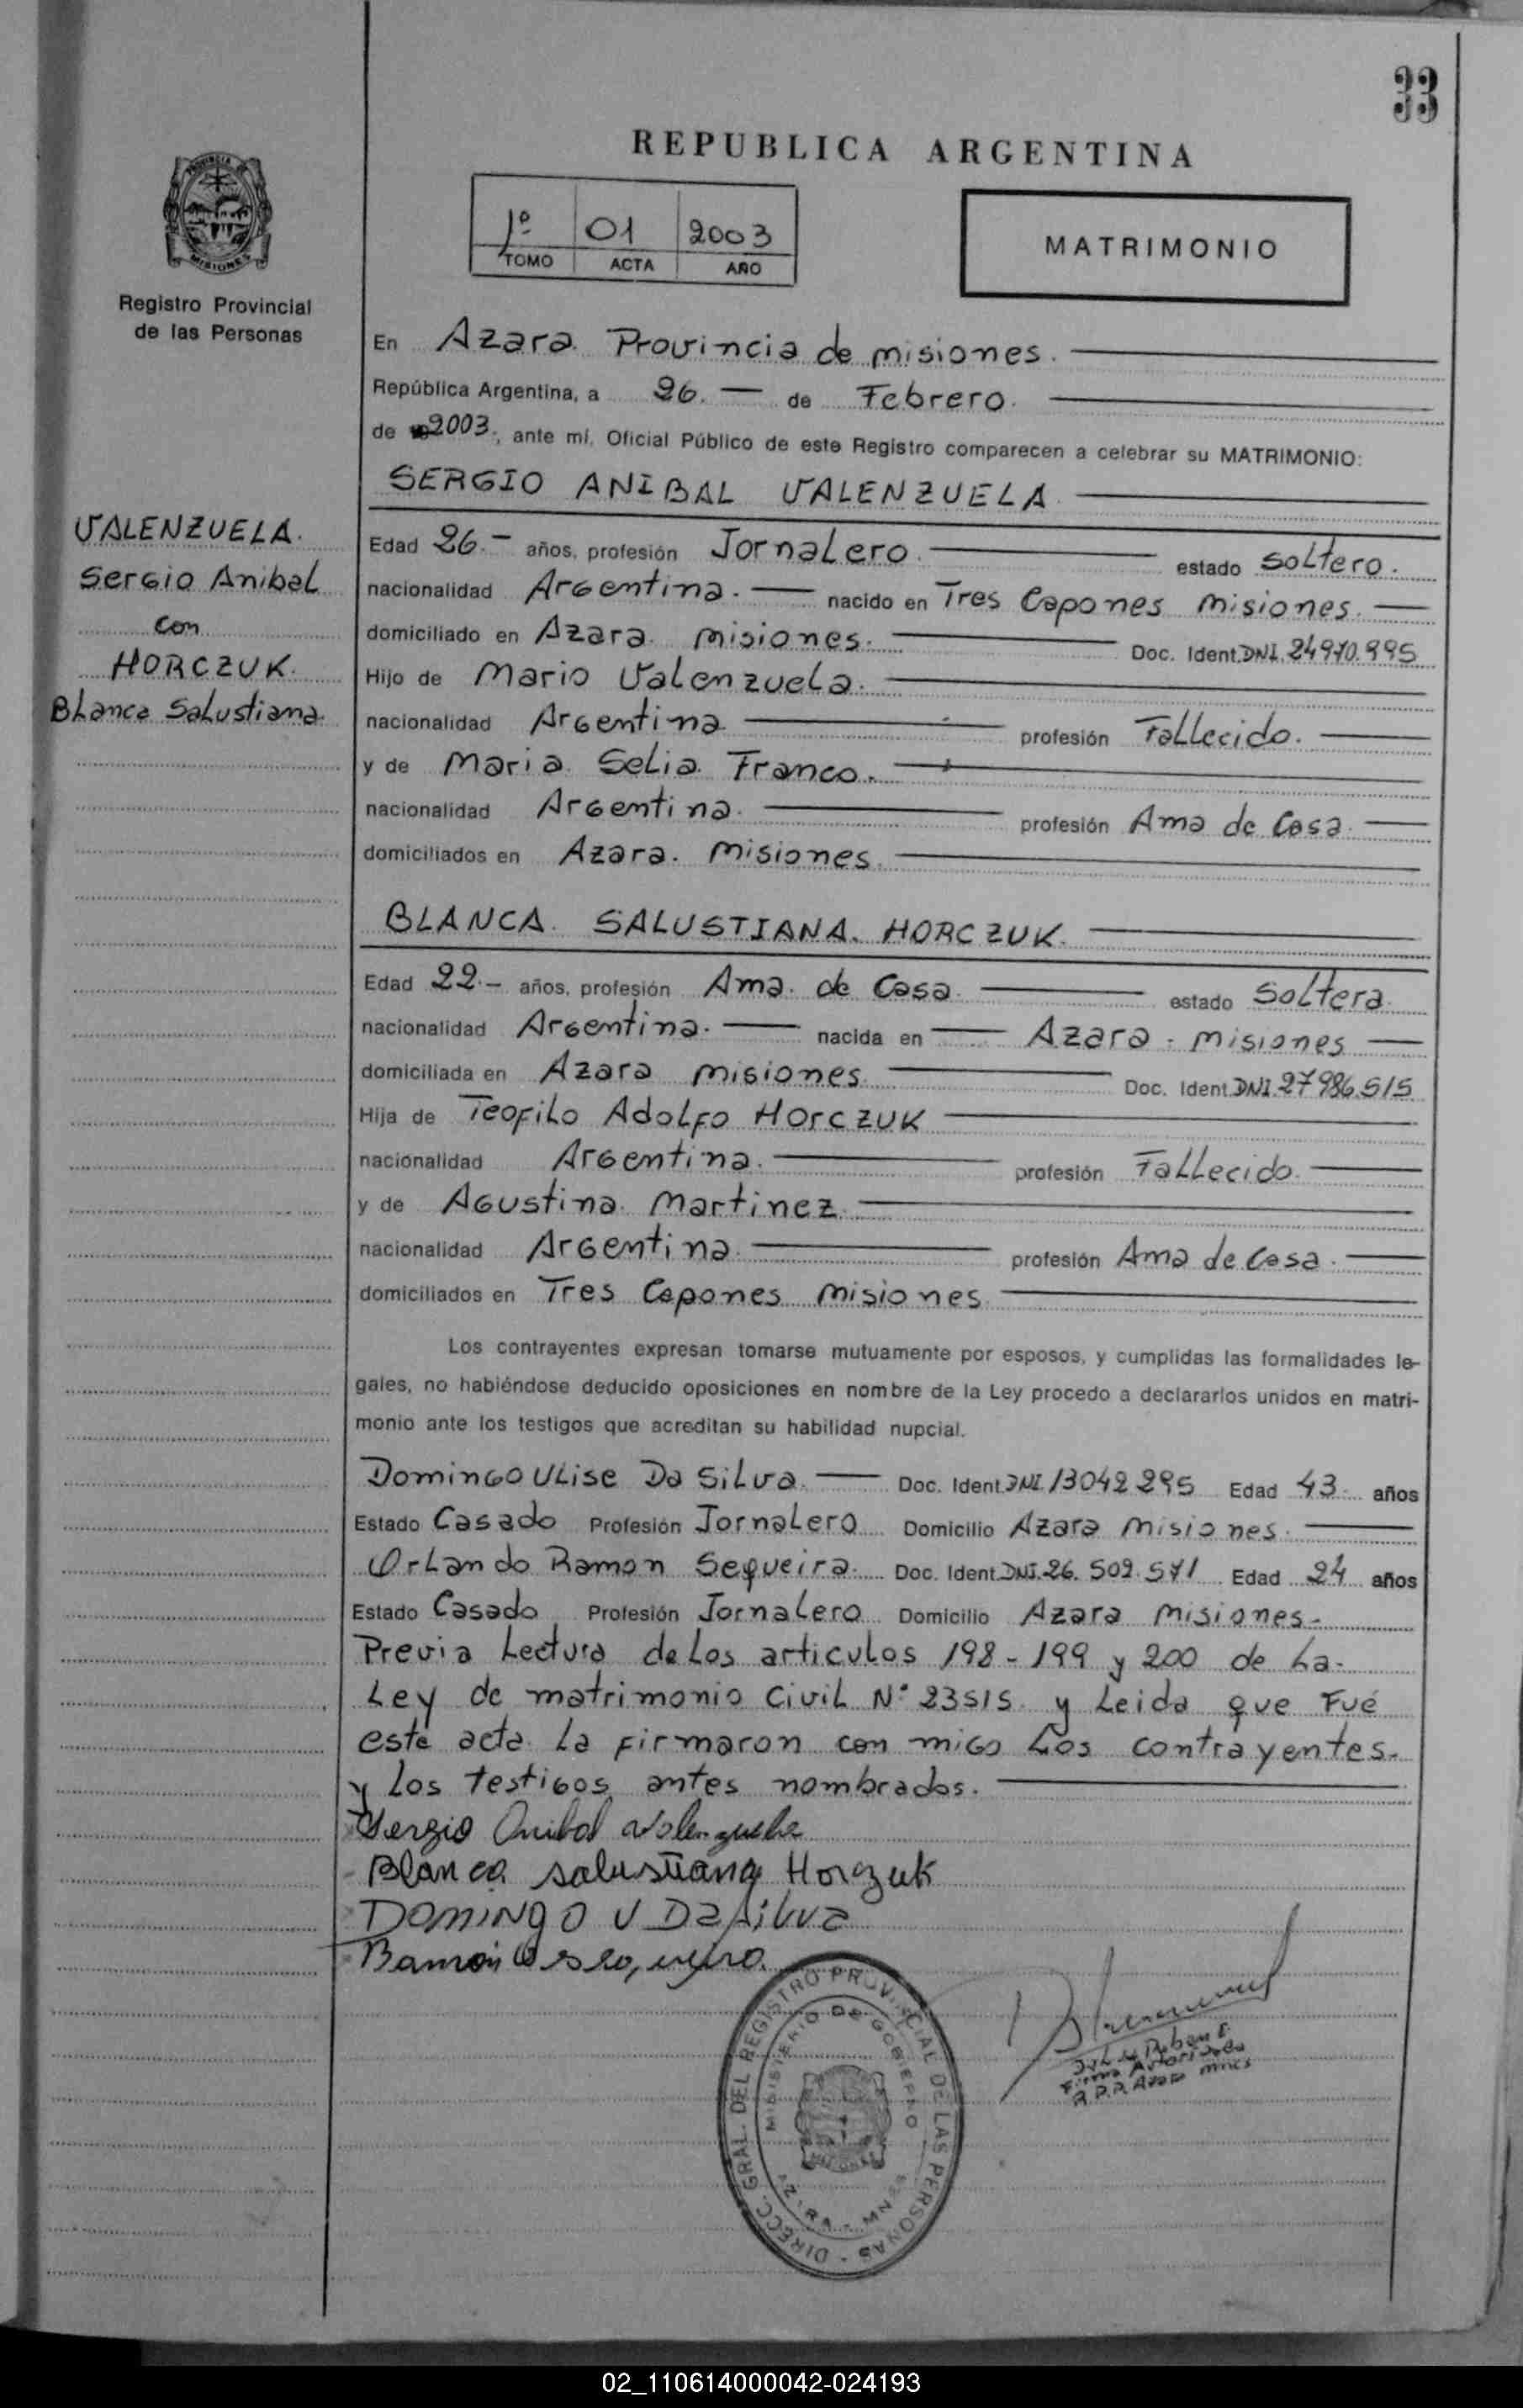 33
REPUBLICA ARGENTINA
1º 01 2003
TOMO ACTA AÑO
MATRIMONIO
PROVINCIA DE
MISIONES
Registro Provincial
de las Personas
VALENZUELA.
Sergio Anibal
con
HORCZUK.
Blanca Salustiana.
En Azara. Provincia de misiones.
República Argentina, a 26. — de Febrero.
de 2003., ante mí, Oficial Público de este Registro comparecen a celebrar su MATRIMONIO:
SERGIO ANIBAL VALENZUELA.
Edad 26.- años, profesión Jornalero. estado soltero.
nacionalidad Argentina. nacido en Tres Capones misiones.
domiciliado en Azara. misiones. Doc. Ident. DNI. 24970.995
Hijo de Mario Valenzuela.
nacionalidad Argentina profesión Fallecido.
y de Maria Selia Franco.
nacionalidad Argentina. profesión Ama de Casa.
domiciliados en Azara. misiones.
BLANCA. SALUSTIANA. HORCZUK.
Edad 22.- años, profesión Ama. de Casa. estado Soltera.
nacionalidad Argentina. nacida en Azara. misiones
domiciliada en Azara misiones Doc. Ident. DNI. 27986.515
Hija de Teofilo Adolfo Horczuk
nacionalidad Argentina. profesión Fallecido.
y de Agustina Martinez.
nacionalidad Argentina. profesión Ama de Casa.
domiciliados en Tres Capones misiones.
Los contrayentes expresan tomarse mutuamente por esposos, y cumplidas las formalidades le-
gales, no habiéndose deducido oposiciones en nombre de la Ley procedo a declararlos unidos en matri-
monio ante los testigos que acreditan su habilidad nupcial.
Domingo Ulise Da Silva. Doc. Ident. DNI. 13042295 Edad 43. años
Estado Casado Profesión Jornalero Domicilio Azara misiones.
Orlando Ramon Sequeira. Doc. Ident. DNI. 26.509.571 Edad 24 años
Estado Casado Profesión Jornalero Domicilio Azara misiones.
Previa Lectura de Los articulos 198-199 y 200 de La.
Ley de matrimonio Civil Nº 23515. y Leida que Fué
este acta La firmaron con migo Los contrayentes.
y Los testigos antes nombrados.
Sergio Anibal Valenzuela
Blanca Salustiana Horczuk
DOMINGO U Da silva
Ramón
Firma Autorizada
R.P.P. Azara mnes
DIRECC. GRAL. DEL REGISTRO PROVINCIAL DE LAS PERSONAS
MINISTERIO DE GOBIERNO
AZARA - MNES
02_110614000042-024193